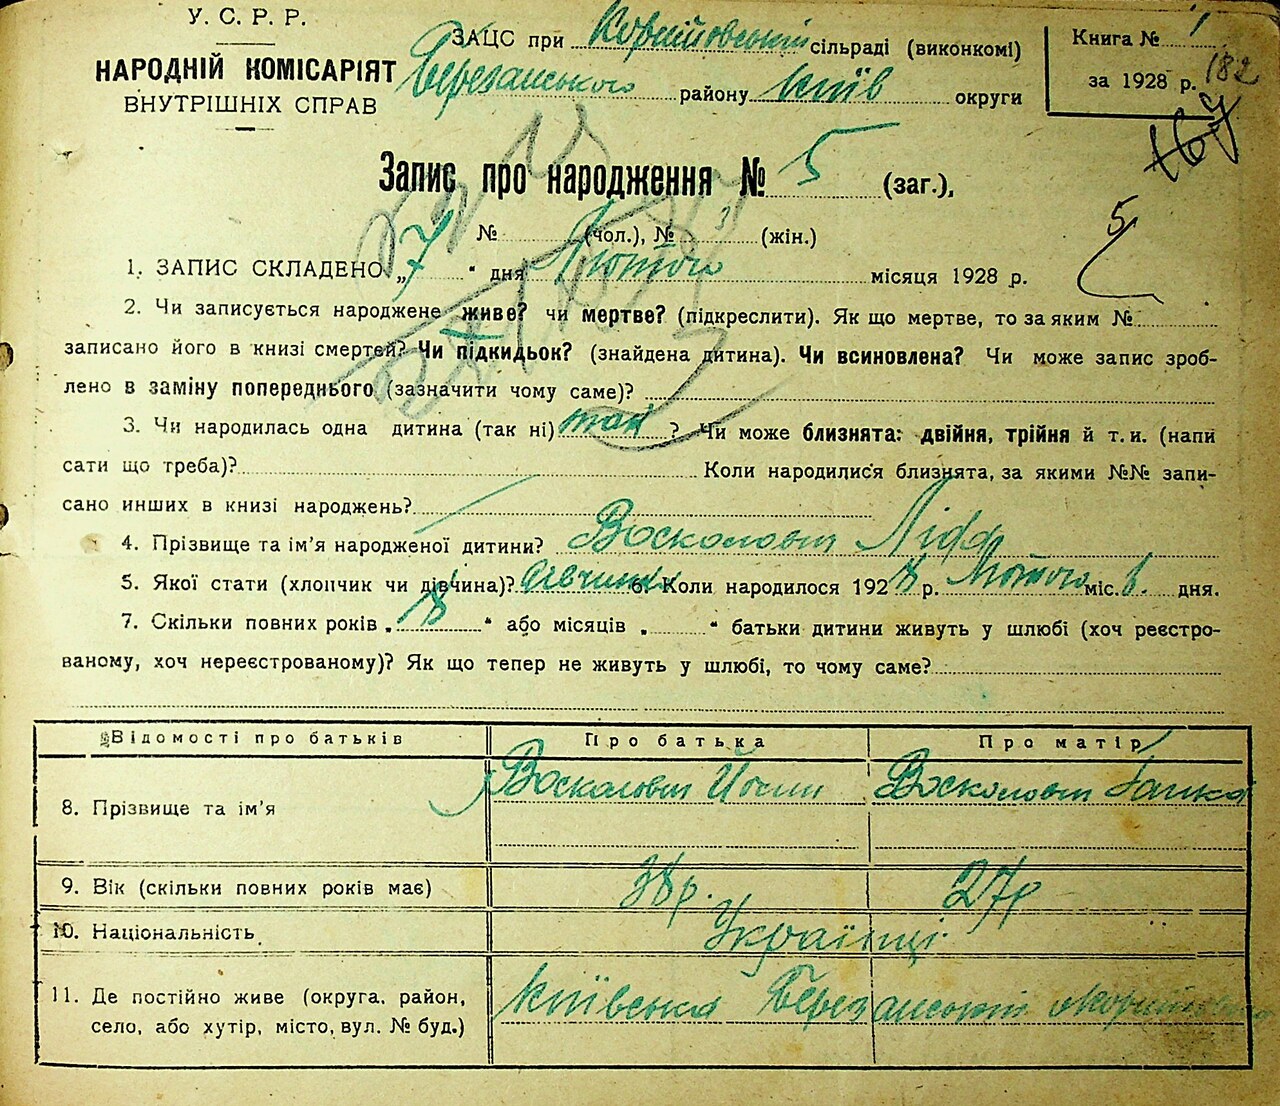 У. С. Р. Р.
НАРОДНІЙ КОМІСАРІЯТ
ВНУТРІШНІХ СПРАВ
ЗАЦС при сільраді (виконкомі)
Березанського району Київ округи
Книга № 1
за 1928 р. 182
167
Запис про народження № 5 (заг.),
№ (чол.), № 3 (жін.)
5
1. ЗАПИС СКЛАДЕНО „7“ дня Лютого місяця 1928 р.
2. Чи записується народжене живе? чи мертве? (підкреслити). Як що мертве, то за яким №
записано його в книзі смертей? Чи підкидьок? (знайдена дитина). Чи всиновлена? Чи може запис зроб-
лено в заміну попереднього (зазначити чому саме)?
3. Чи народилась одна дитина (так ні) так ? Чи може близнята: двійня, трійня й т. и. (напи
сати що треба)? Коли народилися близнята, за якими №№ запи-
сано инших в книзі народжень?
4. Прізвище та ім’я народженої дитини? Восколович Ліда
5. Якої статі (хлопчик чи дівчина)? дівчинка 6. Коли народилося 1928 р. Лютого міс. 6. дня.
7. Скільки повних років „8“ або місяців „ “ батьки дитини живуть у шлюбі (хоч реєстро-
ваному, хоч нереєстрованому)? Як що тепер не живуть у шлюбі, то чому саме?
Відомості про батьків Про батька Про матір
8. Прізвище та ім’я Восколович Йосип Восколович Ганка
9. Вік (скільки повних років має) 38 р. 27 р
10. Національність Українці.
11. Де постійно живе (округа, район,
село, або хутір, місто, вул. № буд.)
Київська Березанський